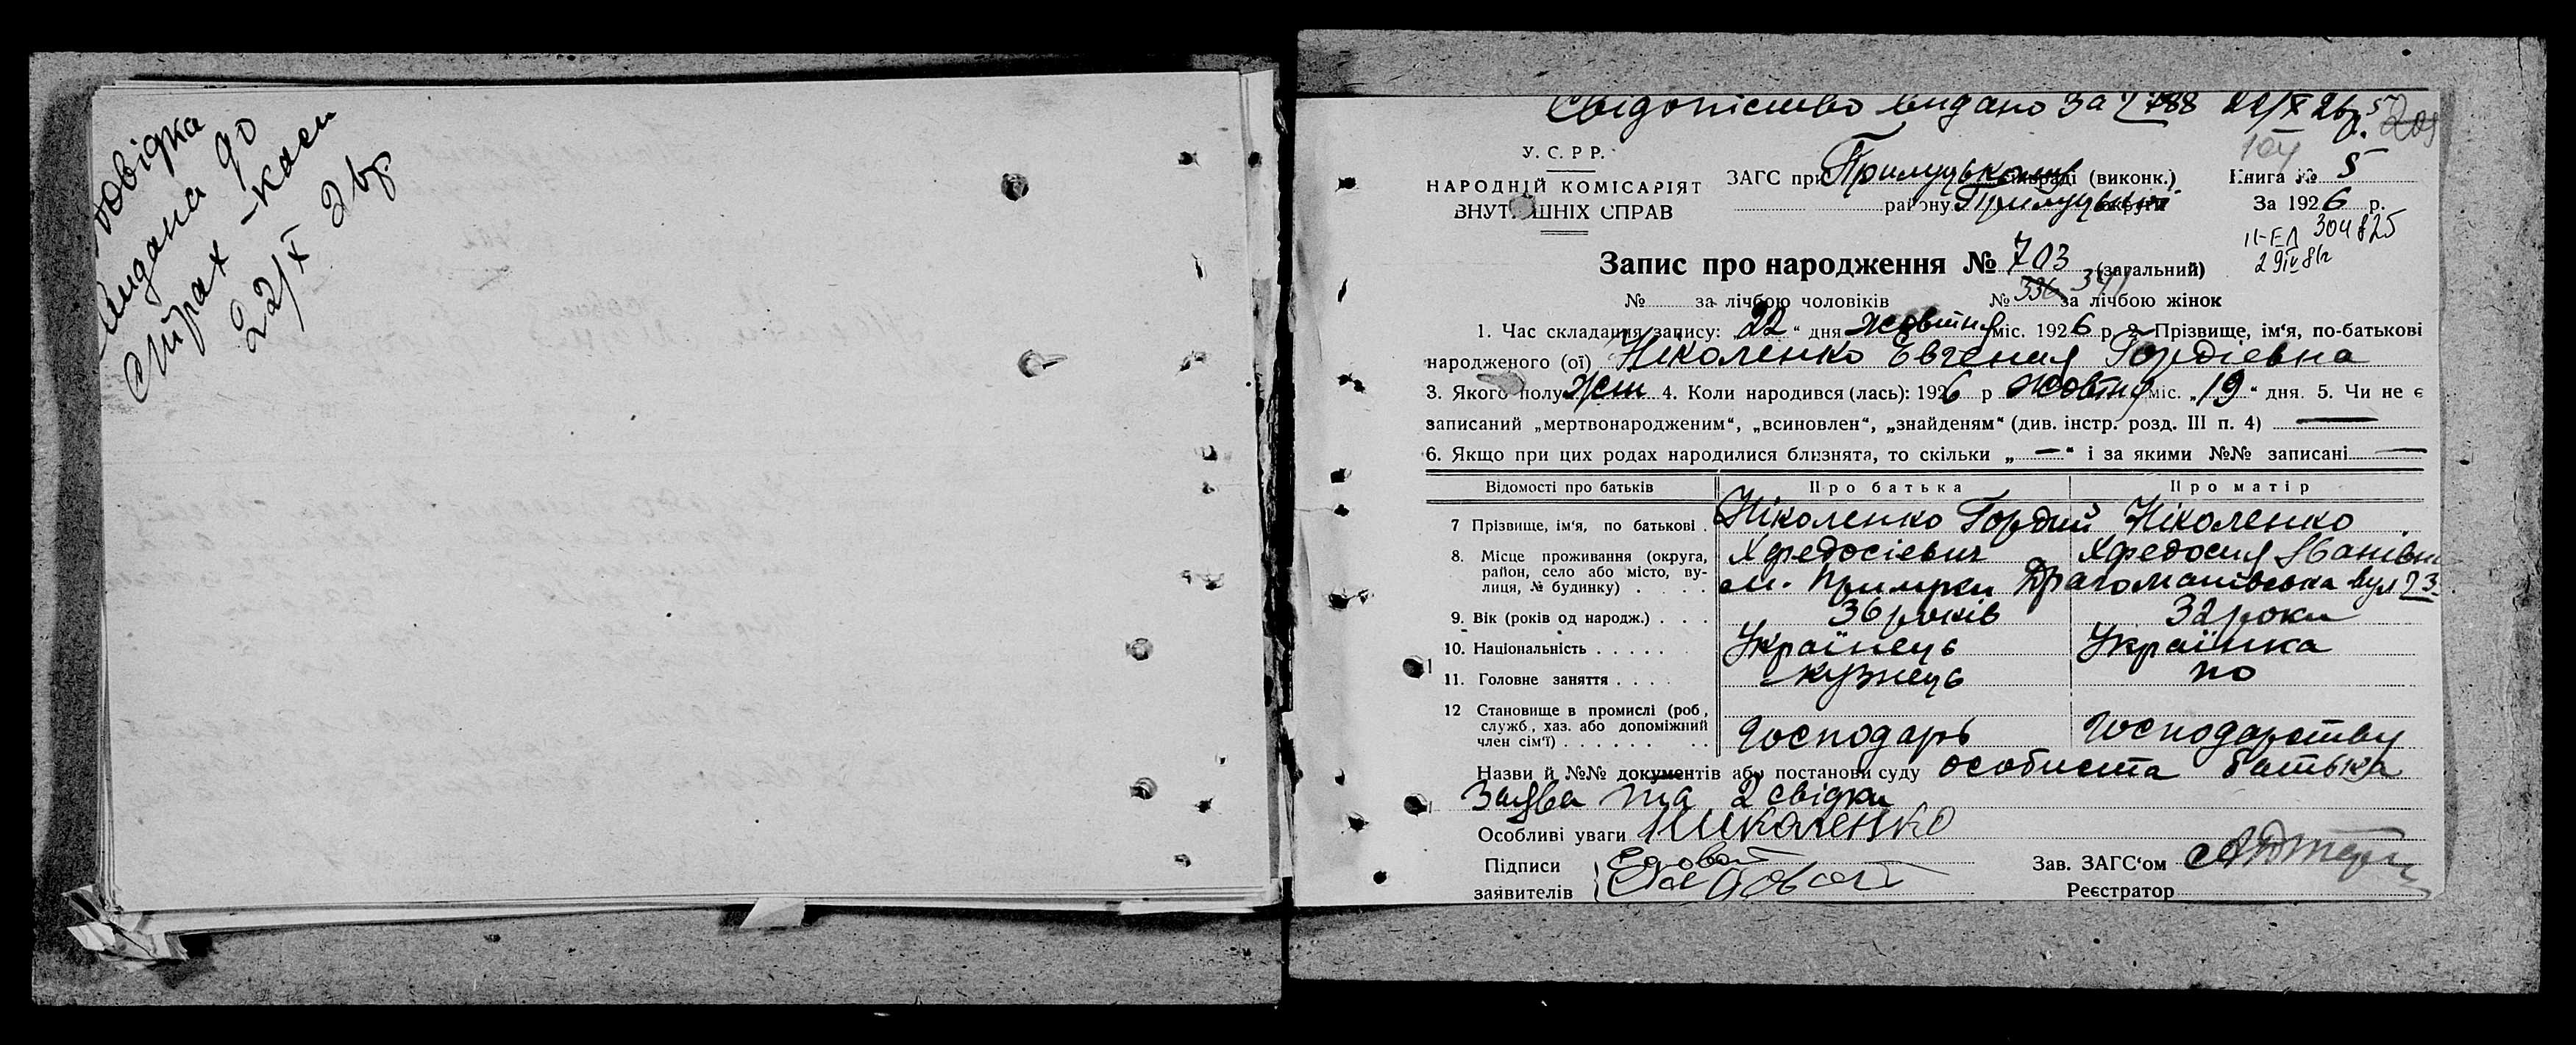 Довідка
видана до
страх-каси
22/X 26 р
Свідоцтво видано за № 788 22/X 26 р.
У. С. Р Р.
НАРОДНІЙ КОМІСАРІЯТ
ВНУТРІШНІХ СПРАВ
ЗАГС при Прилуцькому міськраді (виконк.)
району Прилуцької округи
Книга № 5
За 1926 р.
11-ЕЛ 304825
Запис про народження № 703 (загальний)
№ за лічбою чоловіків № 336 за лічбою жінок
1. Час складання запису: „22“ дня жовтня міс. 1926 р. 2. Прізвище, ім'я, по-батькові
народженого (ої) Ніколенко Евгения Гордіевна
3. Якого полу жін 4. Коли народився (лась): 1926 р жовтня міс. „19“ дня. 5. Чи не є
записаний „мертвонародженим“, „всиновлен“, „знайденям“ (див. інстр. розд. III п. 4) —
6. Якщо при цих родах народилися близнята, то скільки „—“ і за якими №№ записані —
Відомості про батьків Про батька Про матір
7 Прізвище, ім'я, по батькові . Ніколенко Гордий Ніколенко
Хфедосіевич Хфедосия Іванівна
8. Місце проживання (округа, район, село або місто, вулиця, № будинку) . . . . м. Прилуки Драгоманівська вул 23
9. Вік (років од народж.) . . . 36 років 32 роки
10. Національність . . . . . Українець Українка
11. Головне заняття . . . . кузнець по
12 Становище в промислі (роб, служб, хаз. або допоміжний член сім'ї) . . . . . . . . Господарь господарству
Назви й №№ документів або постанови суду особиста батька
заява та 2 свідки
Особливі уваги Николенко
Підписи
заявителів
Зав. ЗАГС'ом
Реєстратор